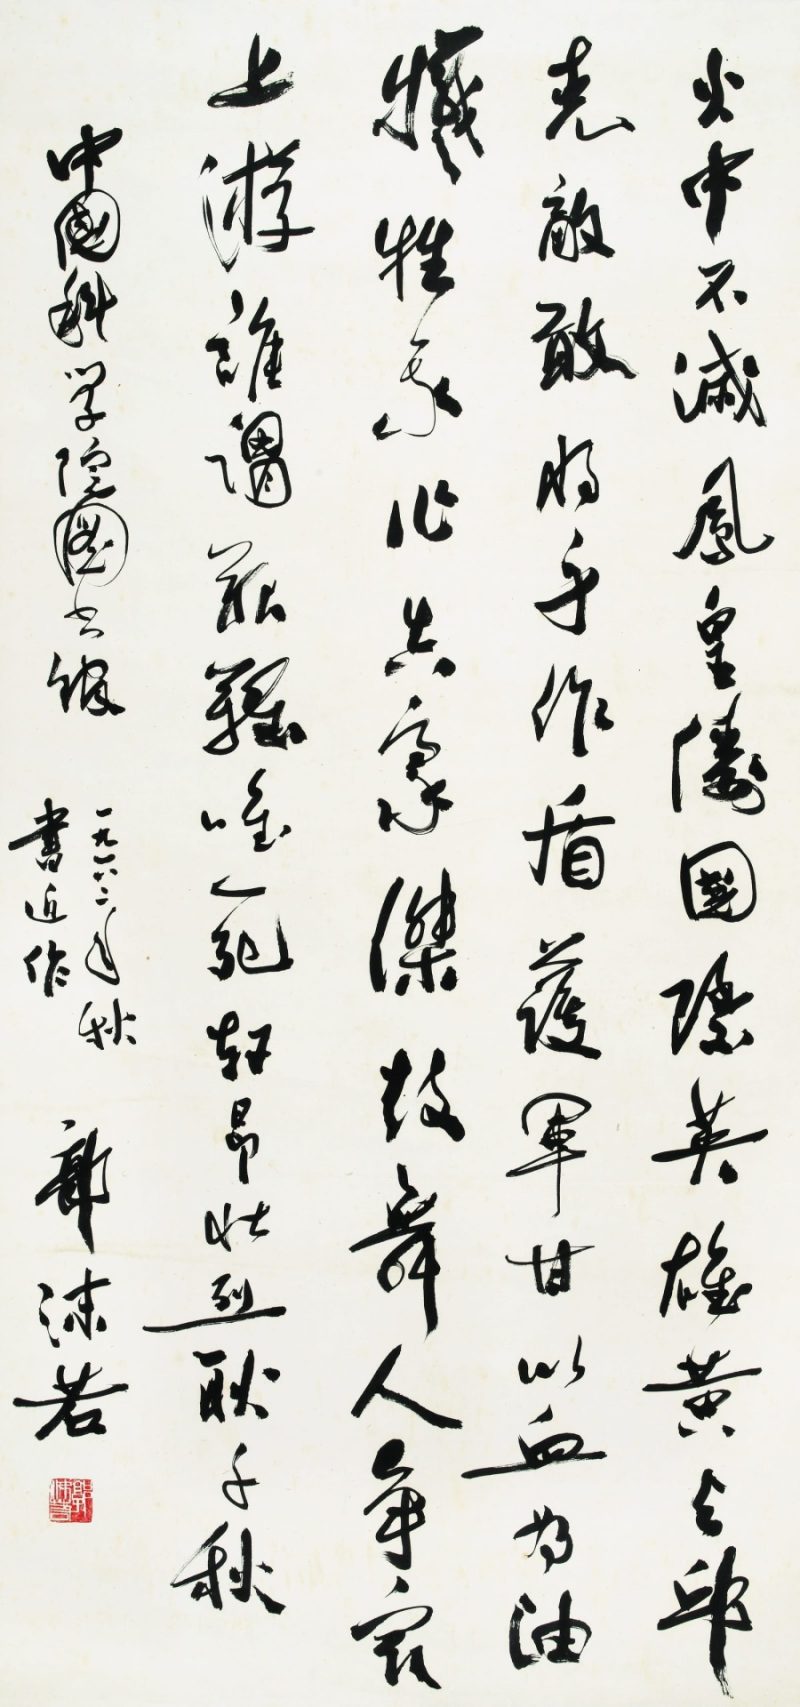 火中不滅鳳皇儔國際英雄黃与邱
克敵敢將身作盾護軍甘以血為油
犧牲永作真豪傑鼓舞人爭最
上游誰謂艱難唯一死軒昂壯烈耿千秋
中國科學院圖書館
一九六二年秋
書近作
郭沫若